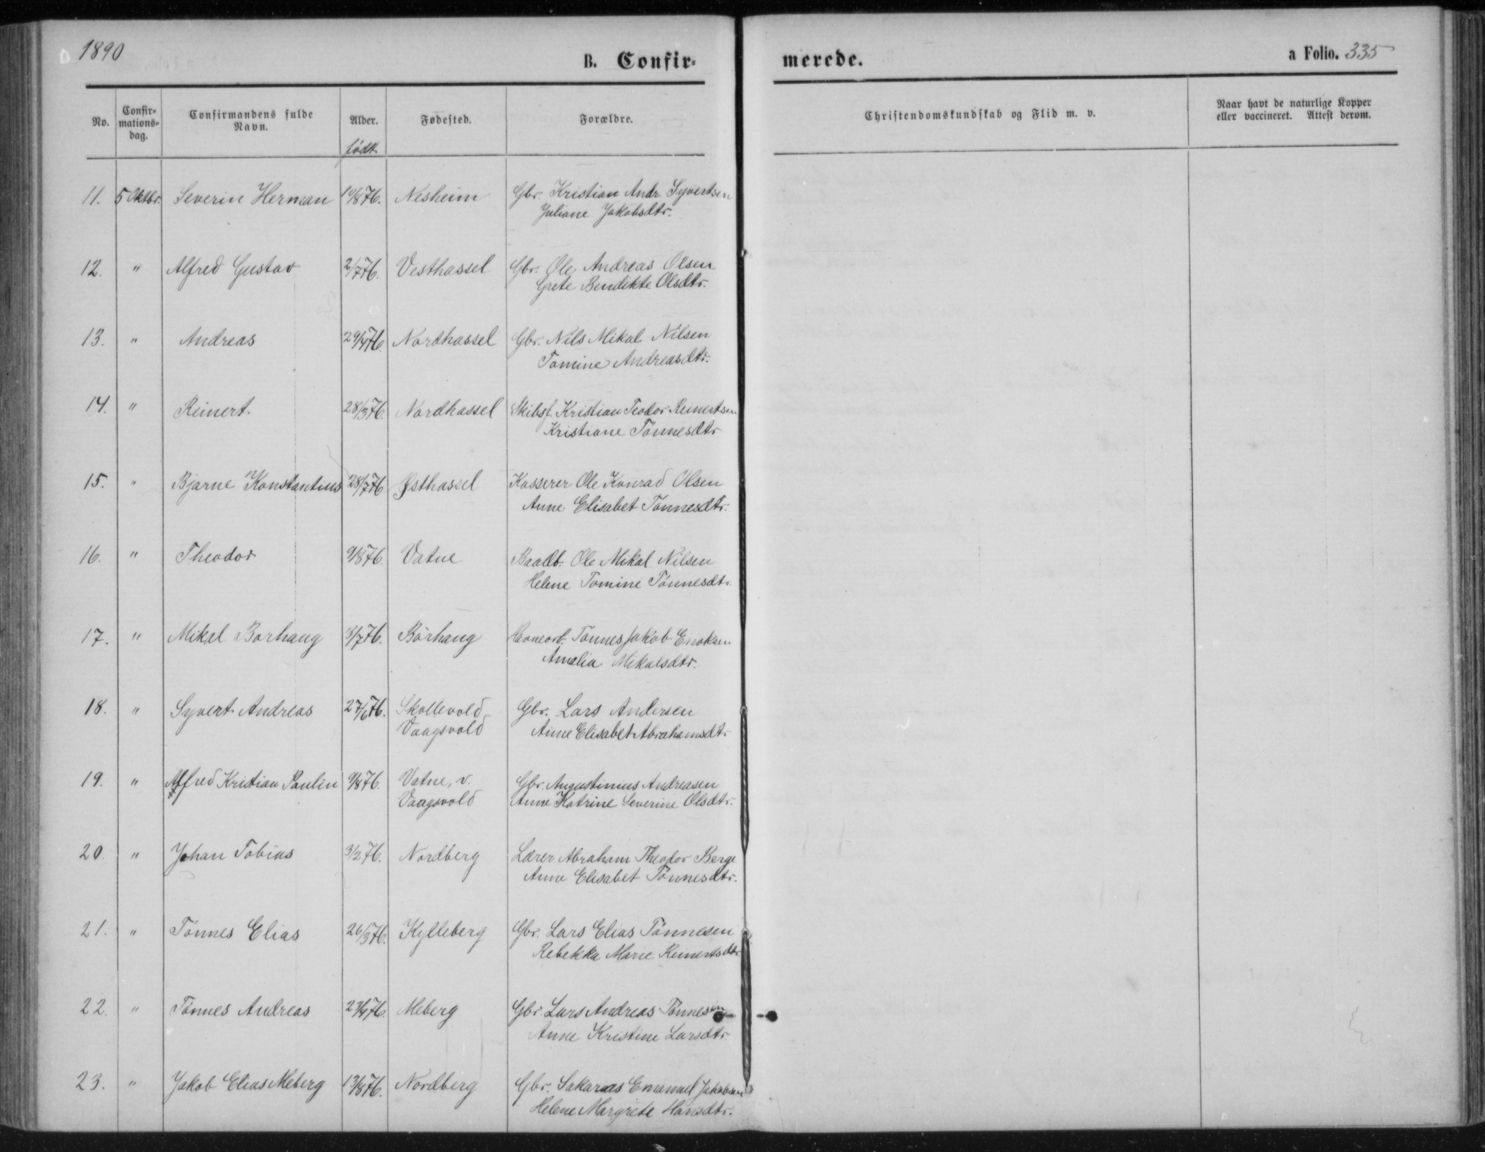 1890
B. Confirmerede.
a Folio. 335
No. Confirmationsdag. Confirmandens fulde Navn. Alder. Fødested. Forældre. Christendomskundskab og Flid m. v. Naar havt de naturlige Kopper eller vaccineret. Attest derom.
født.
11. 5 Oktbr. Severin Herman 10/8 76. Nesheim Gbr. Kristian Andr Syvertsen
Juliane Jakobsdtr.
12. " Alfred Gustav 2/7 76. Vesthassel Gbr. Ole Andreas Olsen
Grete Bendikte Olsdtr.
13. " Andreas 29/4 76 Nordhassel Gbr. Nils Mikal Nilsen
Tomine Andreasdtr.
14. " Reinert. 28/3 76. Nordhassel Skibst. Kristian Teodor Reinertsen
Kristiane Tønnesdtr
15. " Bjarne Konstantius 28/7 76 Østhassel Kasserer Ole Konrad Olsen
Anne Elisabet Tønnesdtr.
16. " Theodor 9/8 76. Vatne Baadb. Ole Mikal Nilsen
Helene Tomine Tønnesdt.
17. " Mikal Borhaug 3/7 76. Börhaug Tønnes Jakob Enoksen
Amalia Mikalsdtr.
18. " Syvert Andreas 27/6 76. Skollevold Gbr. Lars Andersen
Vaagsvold Anne Elisabet Abrahamsdtr
19. " Alfred Kristian Paulin 9/8 76. Vatne, v. Gbr. Augustinius Andreasen
Vaagsvold Anne Katrine Severine Olsdtr.
20. " Johan Tobias 3/2 76. Nordberg Lærer Abraham Theodor Berge
Anne Elisabet Tønnesdtr.
21. " Tønnes Elias 26/3 76. Kjelleberg Gbr. Lars Elias Tønnesen
Rebekka Marie Reinertsdtr
22. " Tønnes Andreas 76 Meberg Gbr. Lars Andreas Tønnesen
Anne Kristine Larsdtr
23. " Jakob Elias Meberg 76. Nordberg Gbr. Sakarias Emanuel Jakobsen
Helene Margrete Hansdtr.